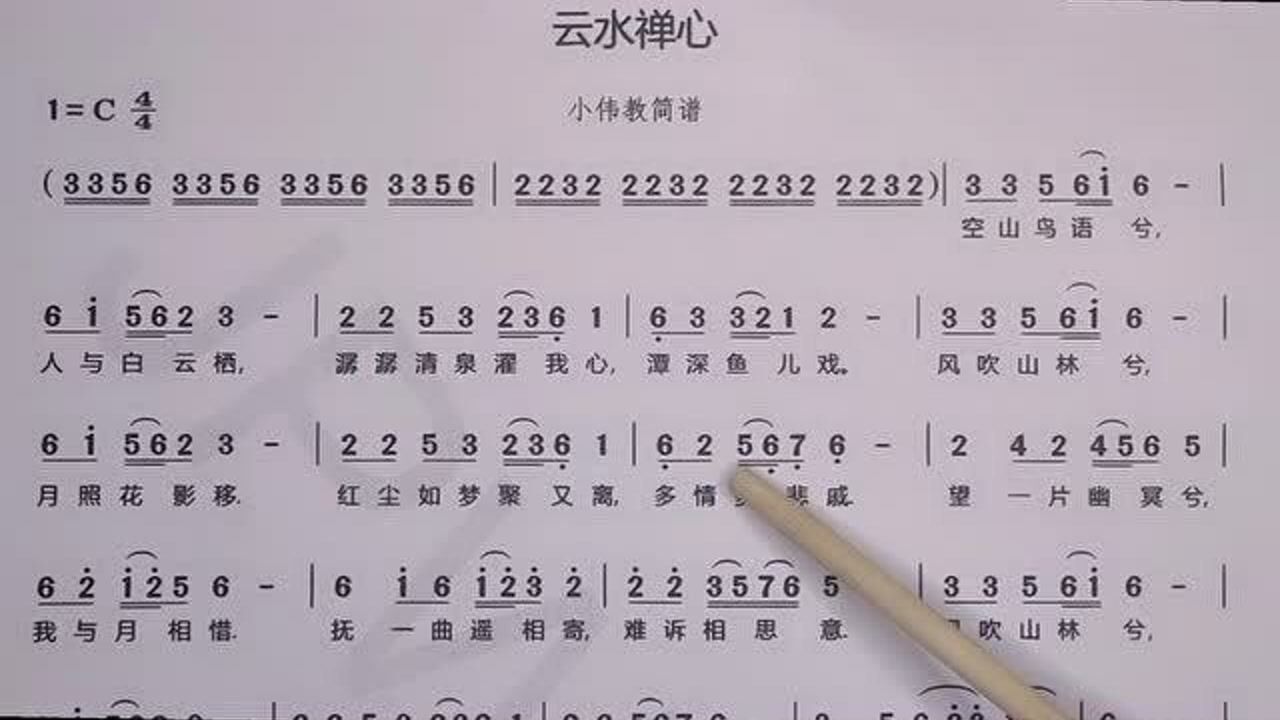 云水禅心
1=C 4/4
小伟教简谱
(3356 3356 3356 3356 | 2232 2232 2232 2232)| 3 3 5 6i̇ 6 - |
空山鸟语 兮,
6 i̇ 562 3 - | 2 2 5 3 236̣ 1 | 6̣ 3 321 2 - | 3 3 5 6i̇ 6 - |
人与白 云栖, 潺潺清泉濯 我心, 潭深鱼 儿戏。 风吹山林 兮,
6 i̇ 562 3 - | 2 2 5 3 236̣ 1 | 6̣ 2 56̣7̣ 6̣ - | 2 4 2 456 5 |
月照花 影移. 红尘如梦聚 又离, 多情 悲戚. 望 一片幽 冥兮,
6 2̇ i̇2̇5 6 - | 6 i̇ 6 i̇2̇3̇ 2̇ | 2̇ 2̇ 3576 5 | 3 3 5 6i̇ 6 - |
我与月 相惜. 抚 一曲遥 相寄, 难诉相 思 意. 吹山林 兮,